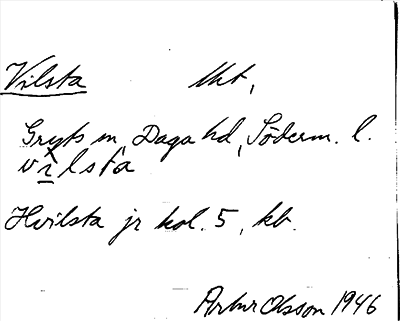 Vilsta Utt,
Gryts sn, Daga hd, Söderm. l.
vìlsta
Hvilsta jr kol. 5, kb.
Artur Olsson 1946